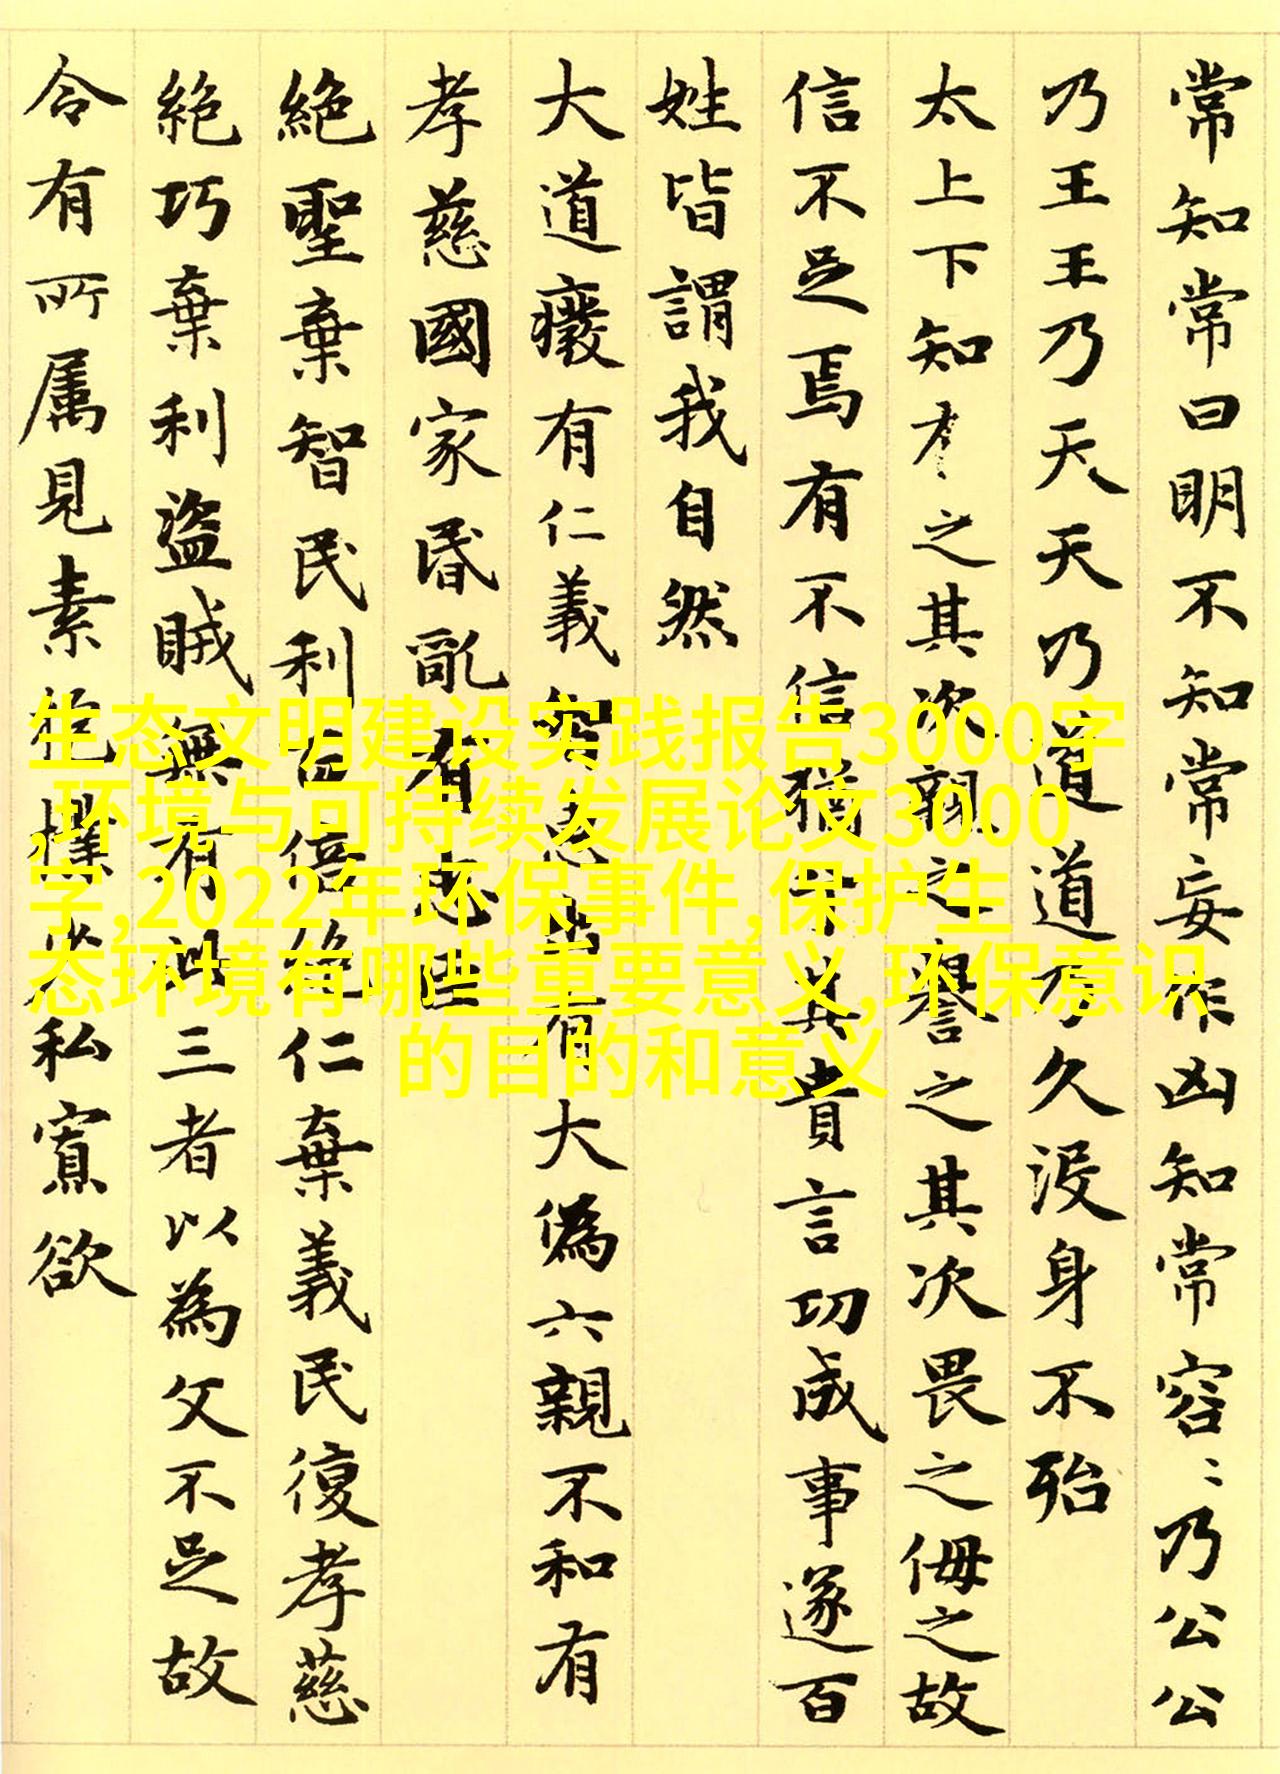 常知常曰明不知知常妄作凶知常容〻乃公公
乃王王乃天天乃道道乃久没身不殆
太上下知有之其次親之譽之其次畏之侮之故
信不足焉有不信猶其貴言功成事遂百
姓皆謂我自然
大道癈有仁義智恵出有大偽六親不和有
孝慈國家昏亂有忠臣
絶聖棄智民利百倍絶仁棄義民復孝慈
絶巧棄利盗賊無有此三者以為文不足故
令有所属見素抱樸少私寡欲
生态文明建设实践报告3000字
,环境与可持续发展论文3000
字,2022年环保事件,保护生
态环境有哪些重要意义,环保意识
的目的和意义